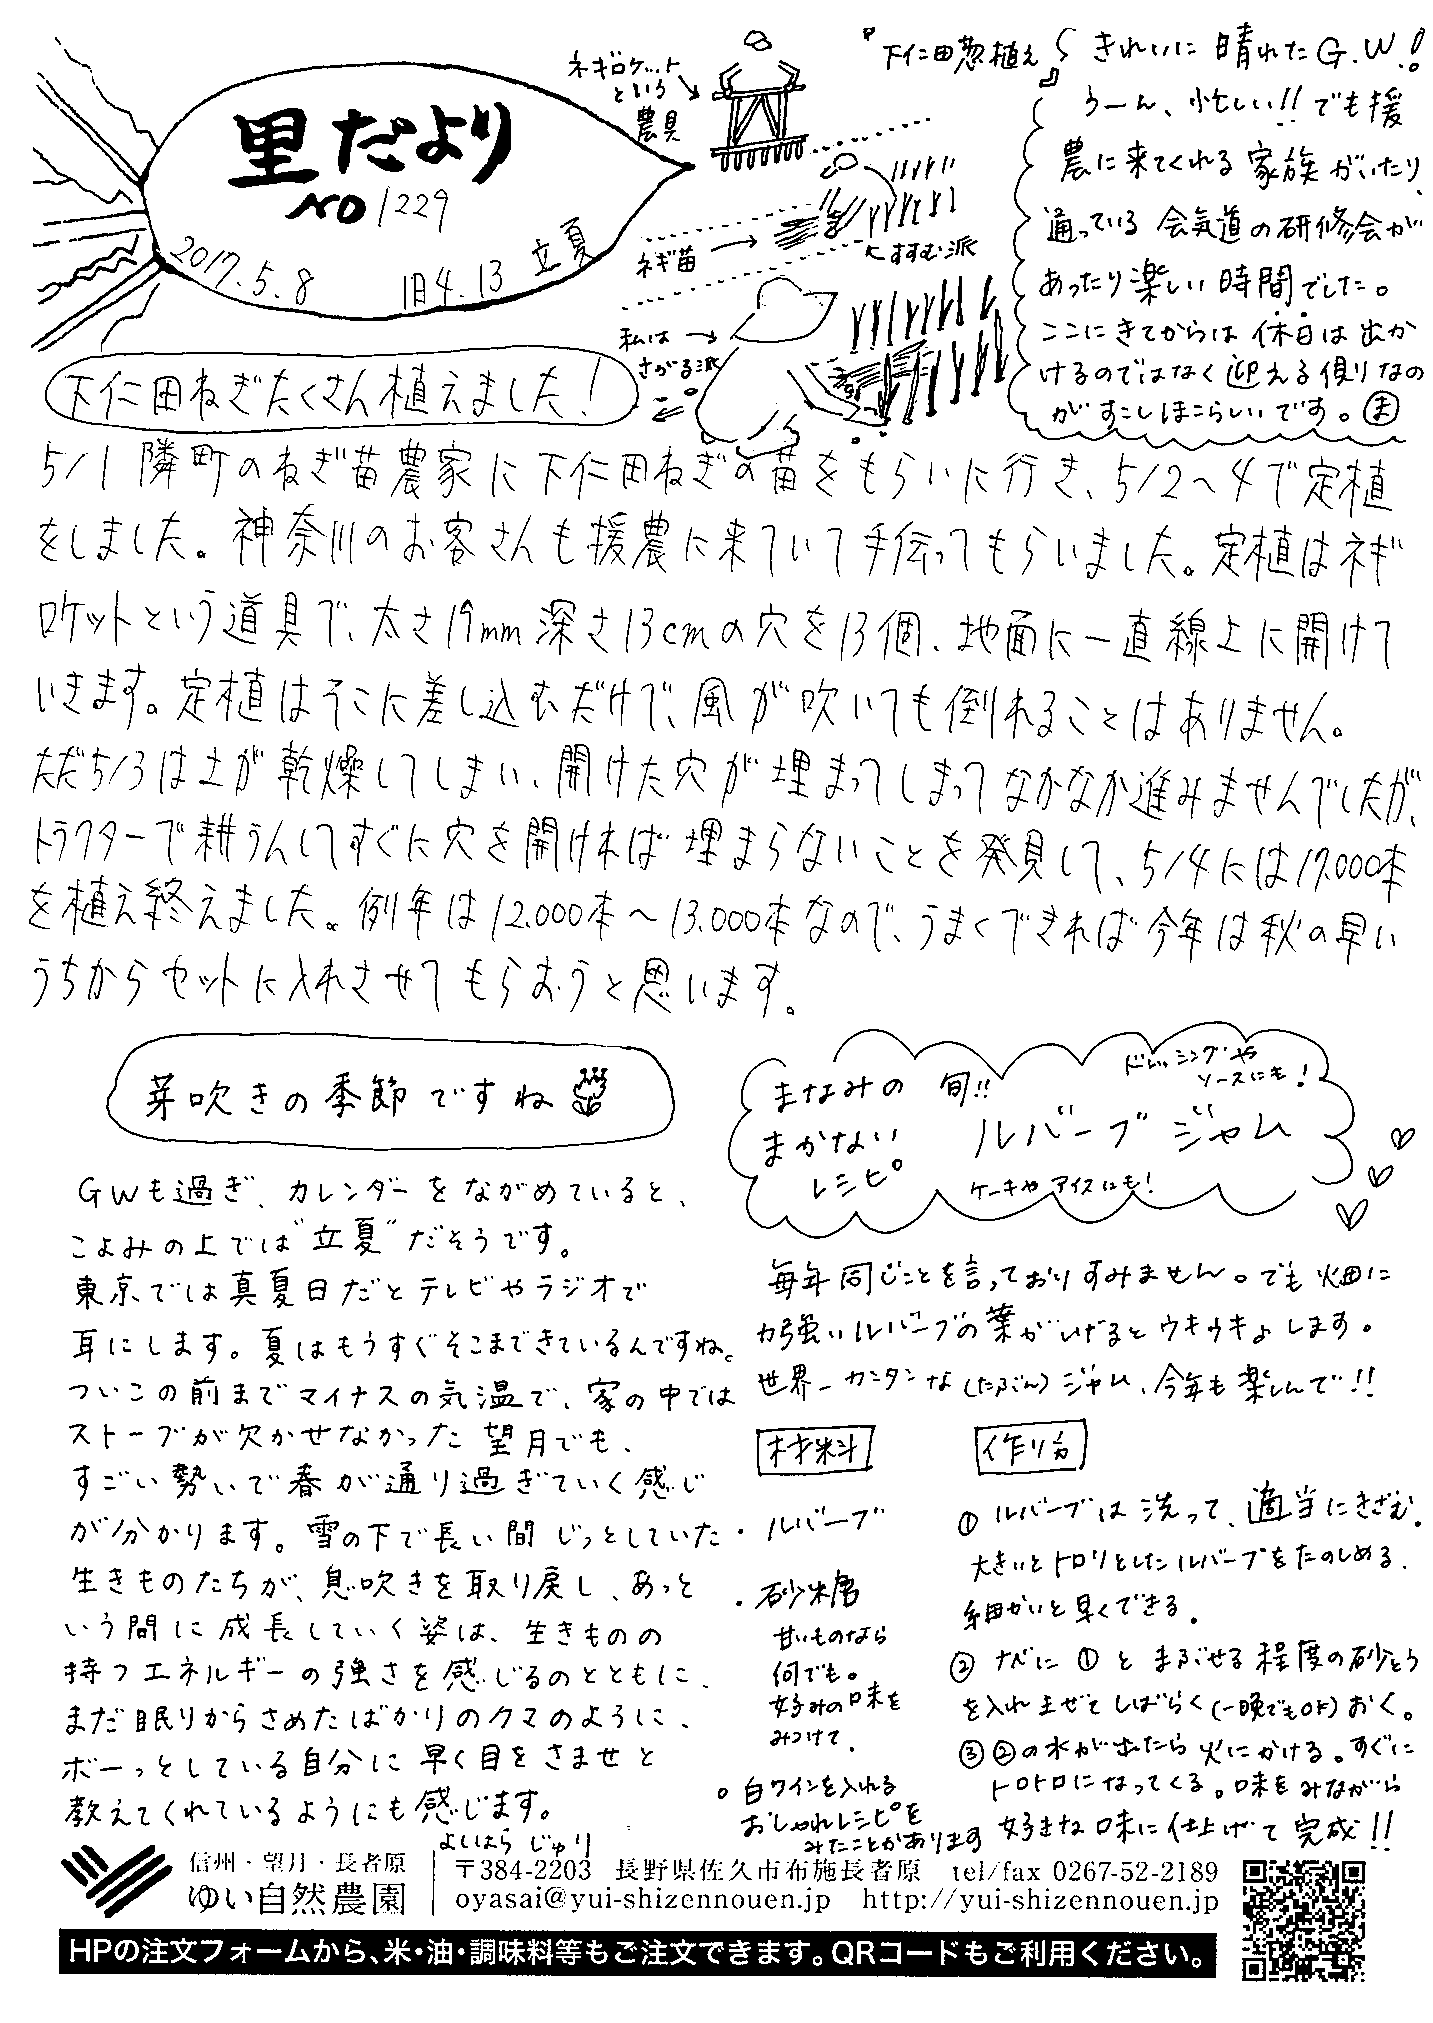 里だより
NO 1229
2017.5.8 旧4.13 立夏
ネギロケット
という
農具
ネギ苗 →
すすむ派
私は →
さがる派
『下仁田葱植え』
きれいに晴れたG.W!
うーん、忙しい!! でも援
農に来てくれる家族がいたり、
通っている合気道の研修会が
あったり楽しい時間でした。
ここにきてからは休日は出か
けるのではなく迎える側なの
がすこしほこらしいです。ま
下仁田ねぎたくさん植えました!
5/1 隣町のねぎ苗農家に下仁田ねぎの苗をもらいに行き、5/2~4で定植
をしました。神奈川のお客さんも援農に来ていて手伝ってもらいました。定植はネギ
ロケットという道具で、太さ19mm深さ13cmの穴を13個、地面に一直線上に開けて
いきます。定植はそこに差し込むだけで、風が吹いても倒れることはありません。
ただ5/3は土が乾燥してしまい、開けた穴が埋まってしまってなかなか進みませんでしたが、
トラクターで耕うんしてすぐに穴を開ければ埋まらないことを発見して、5/4には17,000本
を植え終えました。例年は12,000本~13,000本なので、うまくできれば今年は秋の早い
うちからセットに入れさせてもらおうと思います。
芽吹きの季節ですね
GWも過ぎ、カレンダーをながめていると、
こよみの上では“立夏”だそうです。
東京では真夏日だとテレビやラジオで
耳にします。夏はもうすぐそこまできているんですね。
ついこの前までマイナスの気温で、家の中では
ストーブが欠かせなかった望月でも、
すごい勢いで春が通り過ぎていく感じ
が分かります。雪の下で長い間じっとしていた
生きものたちが、息吹きを取り戻し、あっと
いう間に成長していく姿は、生きものの
持つエネルギーの強さを感じるのとともに、
まだ眠りからさめたばかりのクマのように、
ボーっとしている自分に早く目をさませと
教えてくれているようにも感じます。
よしはら じゅり
まなみの
まかない
レシピ
旬!!
ドレッシングや
ソースにも!
ルバーブジャム
ケーキやアイスにも!
毎年同じことを言っておりすみません。でも畑に
力強いルバーブの葉がひろがるとウキウキします。
世界一カンタンな(たぶん)ジャム、今年も楽しんで!!
材料
・ルバーブ
・砂糖
甘いものなら
何でも。
好みの味を
みつけて。
○白ワインを入れる
おしゃれレシピを
みたことがあります
作り方
① ルバーブは洗って、適当にきざむ。
大きいとトロリとしたルバーブをたのしめる。
細かいと早くできる。
② ナベに①とまぶせる程度の砂とう
を入れまぜてしばらく(一晩でもOK)おく。
③ ②の水が出たら火にかける。すぐに
トロトロになってくる。味をみながら
好きな味に仕上げて完成!!
信州・望月・長者原
ゆい自然農園
〒384-2203 長野県佐久市布施長者原 tel/fax 0267-52-2189
oyasai@yui-shizennouen.jp http://yui-shizennouen.jp
HPの注文フォームから、米・油・調味料等もご注文できます。QRコードもご利用ください。